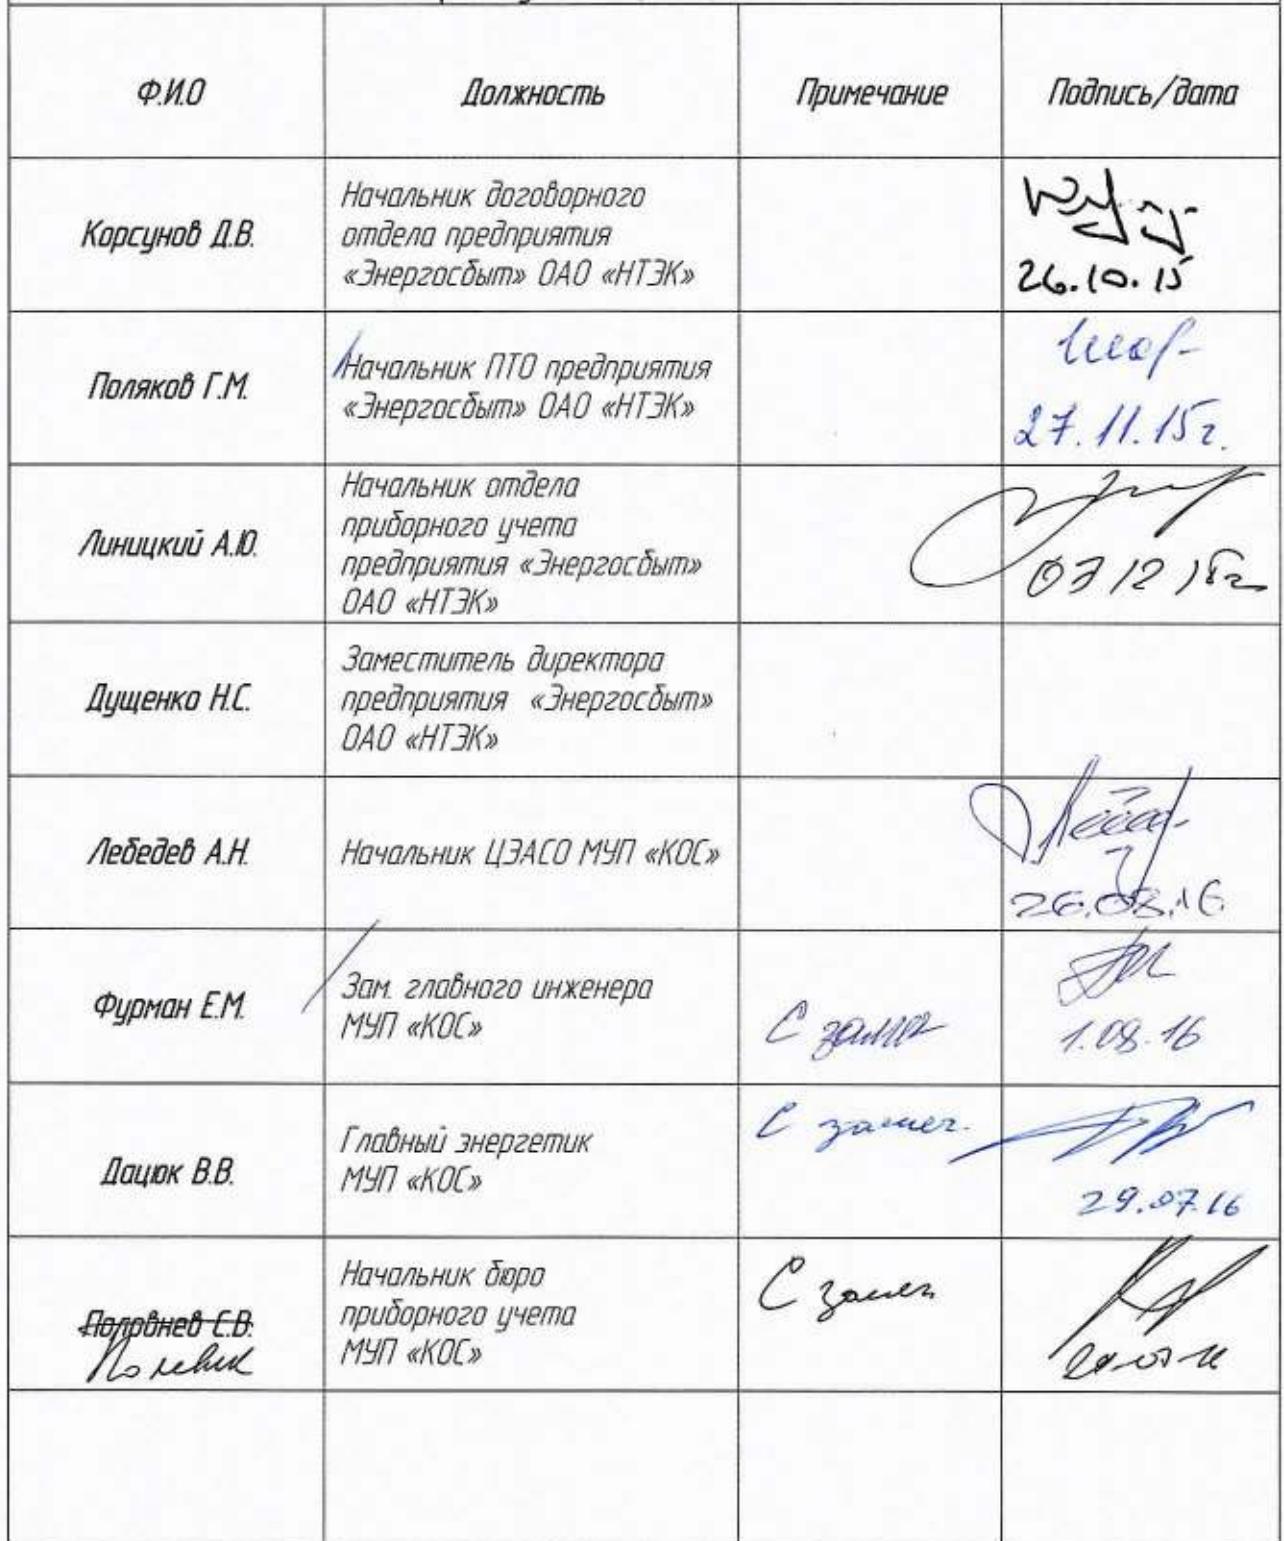 Ф.И.О
Должность
Примечание
Подпись/дата
Корсунов Д.В.
Начальник договорного
отдела предприятия
«Энергосбыт» ОАО «НТЭК»
26.10.15
Поляков Г.М.
Начальник ПТО предприятия
«Энергосбыт» ОАО «НТЭК»
27.11.15г.
Линицкий А.Ю.
Начальник отдела
приборного учета
предприятия «Энергосбыт»
ОАО «НТЭК»
03 12 15г
Дущенко Н.С.
Заместитель директора
предприятия «Энергосбыт»
ОАО «НТЭК»
Лебедев А.Н.
Начальник ЦЭАСО МУП «КОС»
26.08.16
Фурман Е.М.
Зам. главного инженера
МУП «КОС»
С замеч
1.08.16
Дацюк В.В.
Главный энергетик
МУП «КОС»
С замеч.
29.07.16
Половнев С.В.
Начальник бюро
приборного учета
МУП «КОС»
С замеч